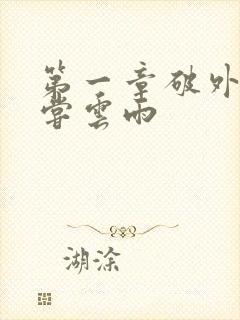 第一章破外
尝雲雨
湖涂